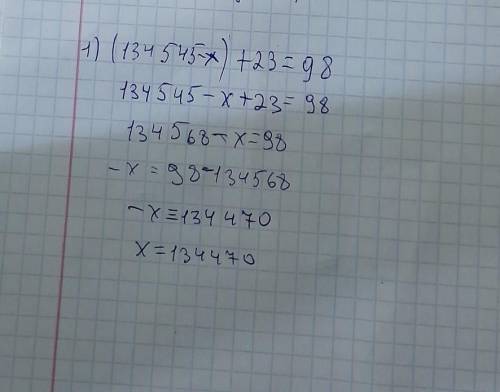 1) (134545-x)+23=98
134545-x+23=98
134568-x=98
-x=98-134568
-x=134470
x=134470